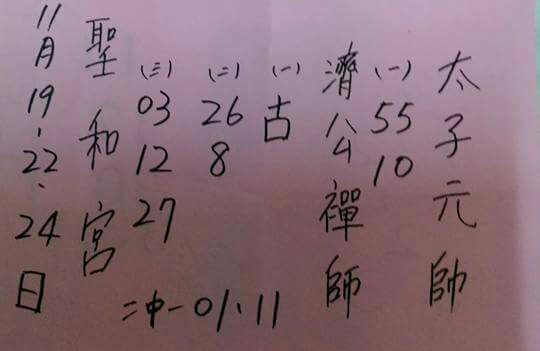 太子元帥
(一) 55 10
濟公禪師
(一) 古
(二) 26 8
(三) 03 12 27
聖和宮
11月19、22、24日
二中一01、11